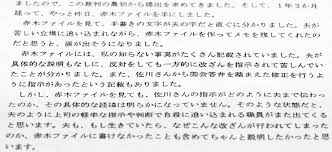 ましたので、この裁判の最初から提出を求めてきました。そして、1年3か月
経って、やっと昨日、赤木ファイルを手にしました。
赤木ファイルを見て、手書きの文字が夫の字だと直ぐに分かりました。夫が
苦しい立場に追い込まれながら、赤木ファイルを作ってメモを残してくれたの
だと思うと、涙が出そうになりました。
赤木ファイルには、私の知らない事実がたくさん記載されていました。夫が
具体的な説明もなしに、反対をしても一方的に改ざんを指示されて苦しんでい
たことが分かりました。また、佐川さんから国会答弁を踏まえた修正を行うよ
うに指示があったという記載もありました。
しかし、赤木ファイルを見ても、佐川さんの指示がどのように夫まで伝わっ
たのか、その具体的な経緯は明らかになっていません。そのような状態だと、
夫のように上司の理不尽な指示や判断で自殺に追い込まれる職員がまた出てくる
と思います。夫も、もし生きていたら、なぜこんな改ざんが行われてしまったの
か、赤木ファイルに書けなかったことも含めてちゃんと説明したかったと思い
ます。